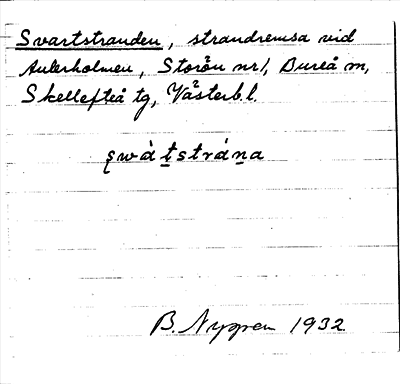 Svartstranden, strandremsa vid
Aulerholmen, Storön nr 1, Bureå m,
Skellefteå tg, Västerb. l.
swátstrána
B. Nygren 1932